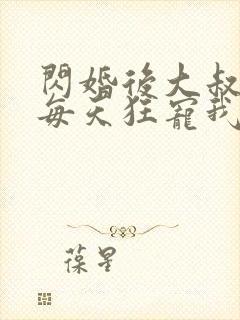 閃婚後大叔
每天狂寵我
葆星